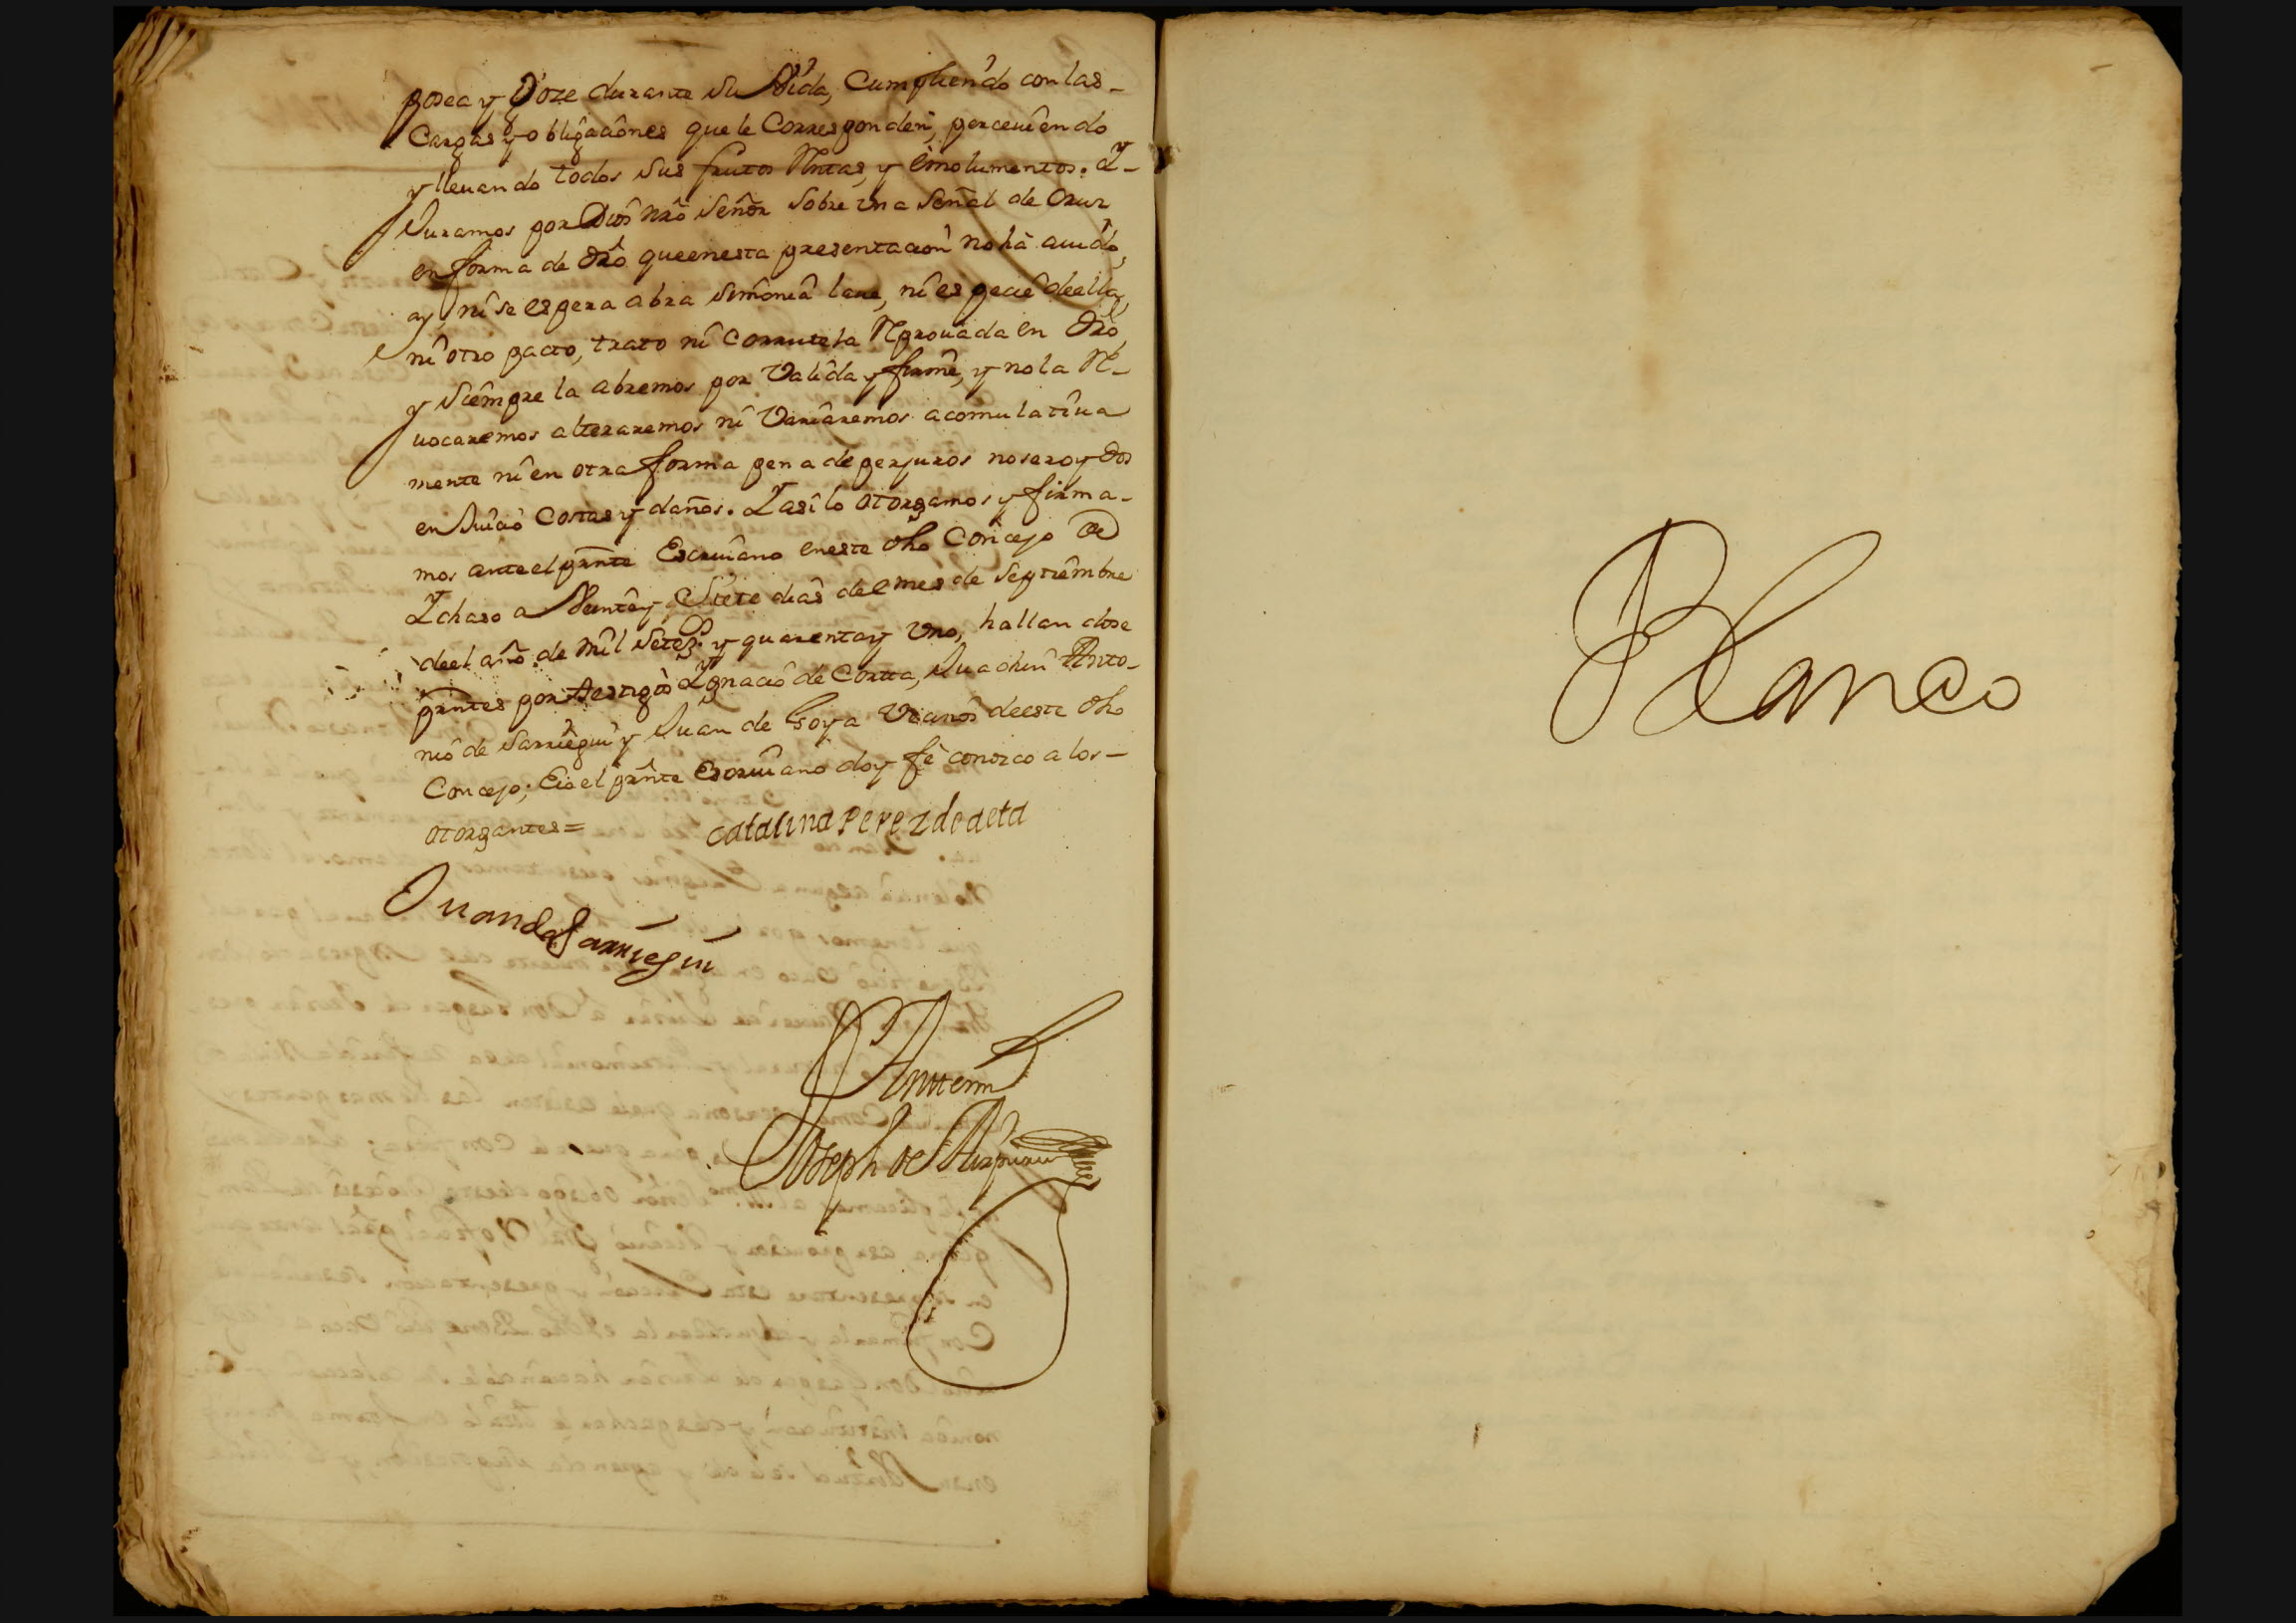 posea y Goze durante su Vida, Cumpliendo con las -
Cargas y obligaciones que le Corresponden, perceuiendo
y lleuando todos sus frutos Rentas, y emolumentos. Y -
Juramos por Dios nrõ Señor sobre una señal de Cruz
en forma de drõ que en esta presentacion no hà auido,
ay, ni se espera abra simonia leue, ni especie de ella,
ni otro pacto, trato ni corrutela Reprouada en drõ,
y siempre la abremos por valida y firme, y no la Re-
uocaremos alteraremos ni variaremos acomulatiua
mente ni en otra forma pena de perjuros no ser oydos
en Juicio costas y daños. Y asi lo otorgamos y firma-
mos ante el prnte Escriuano en este dho Concejo de
Ychaso a Veinte y Siete dias de el mes de Septiembre
de el año de mil setezs. y quarenta y uno, hallandose
prntes por testigos Ygnacio de Cortta, Juachin Anto-
nio de Sarriegui y Juan de Goya vecinos de este dho
Concejo; E io el prnte Escriuano doy fè conozco a los -
otorgantes =
catalina Perez de aeta
Juan de Sarriegui
Antemi
Joseph de Aizpuru
Blanco